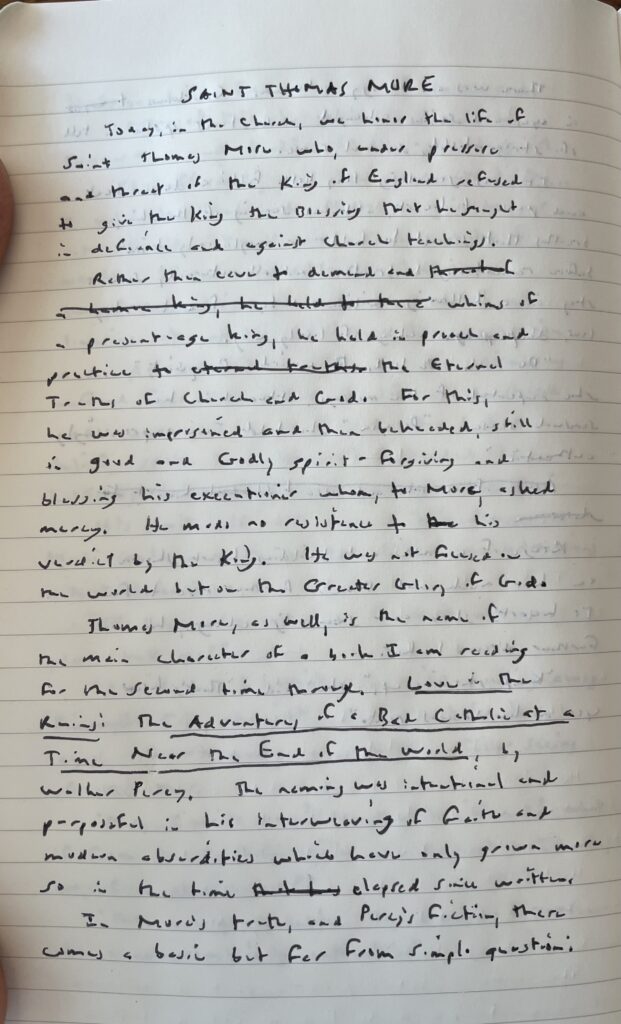 SAINT THOMAS MORE
Today, in the Church, we honor the life of
Saint Thomas More who, under pressure
and threat of the King of England refused
to give the King the Blessing that he sought
in defiance and against Church teachings.
Rather than cave to demand and threat of
a human king, he held to these whims of
a present-age king, he held in preach and
practice to eternal truths the Eternal
Truths of Church and God. For this,
he was imprisoned and then beheaded, still
in good and Godly spirit - forgiving and
blessing his executioner whom, to More, asked
mercy. He made no resistance to the his
verdict by the King. He was not focused on
the world but on the Greater Glory of God.
Thomas More, as well, is the name of
the main character of a book I am reading
for the second time through. Love in the
Ruins: The Adventures of a Bad Catholic at a
Time Near the End of the World, by
Walker Percy. The naming was intentional and
purposeful in his interweaving of faith and
modern absurdities which have only grown more
so in the time that has elapsed since written.
In More's truth, and Percy's fiction, there
comes a basic but far from simple question: